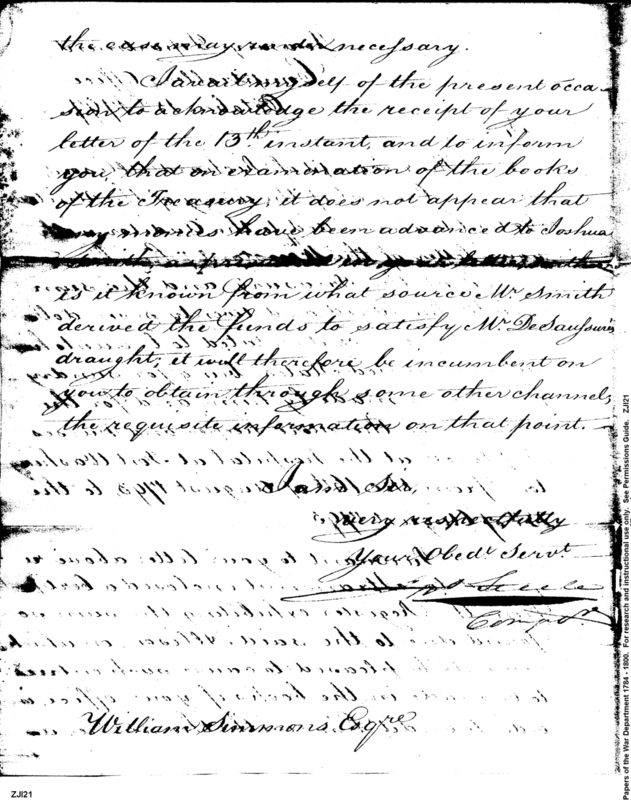 the case may render necessary.
I avail myself of the present occa-
sion to acknowledge the receipt of your
letter of the 13th instant, and to inform
you, that on examination of the books
of the Treasury, it does not appear that
any monies have been advanced to Joshua
Smith, as
is it known from what source Mr. Smith
derived the funds to satisfy Mr. DeSaussure's
draught, it will therefore be incumbent on
you to obtain through some other channel,
the requisite information on that point.—
I am Sir,
Very respectfully
Your Obedt. Servt.
Jno. Steele
Compr.
William Simmons Esqre.
ZJI21
Papers of the War Department 1784 - 1800. For research and instructional use only. See Permissions Guide. ZJI21